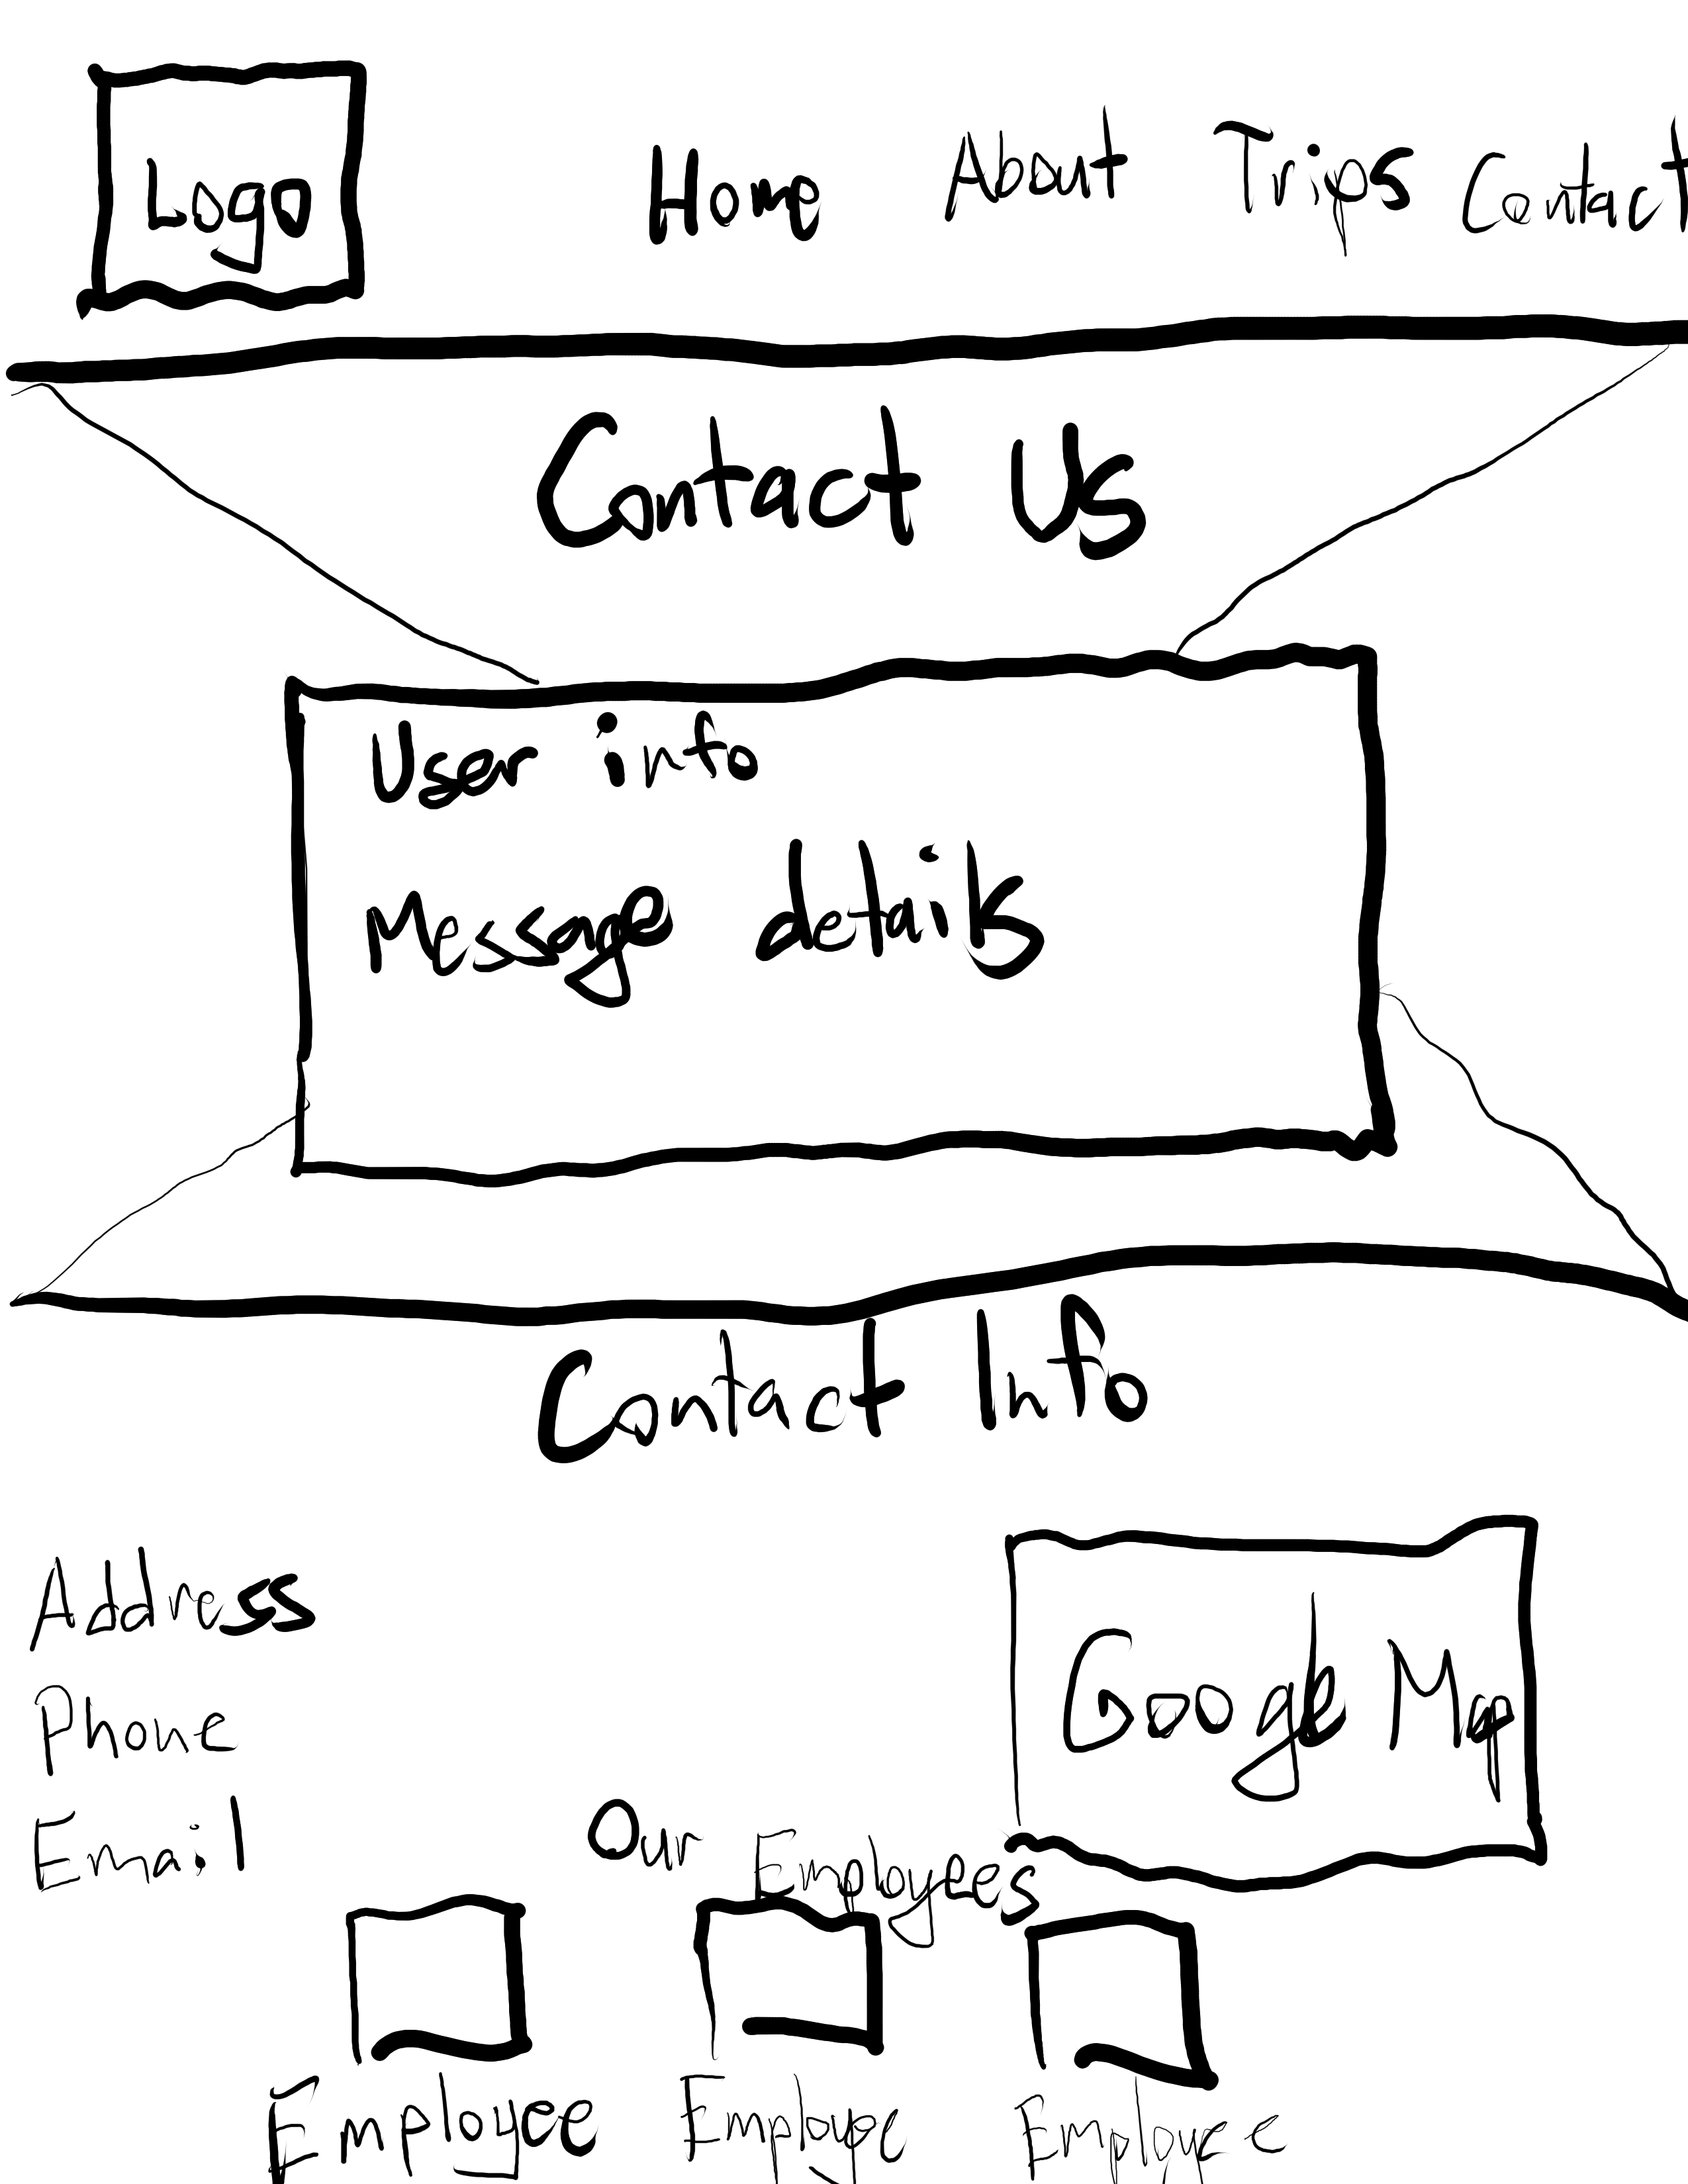 Logo
Home About Trips Contact
Contact Us
User info
Message details
Contact Info
Address
Phone
Email
Google Map
Our Employees
Employee Employee Employee